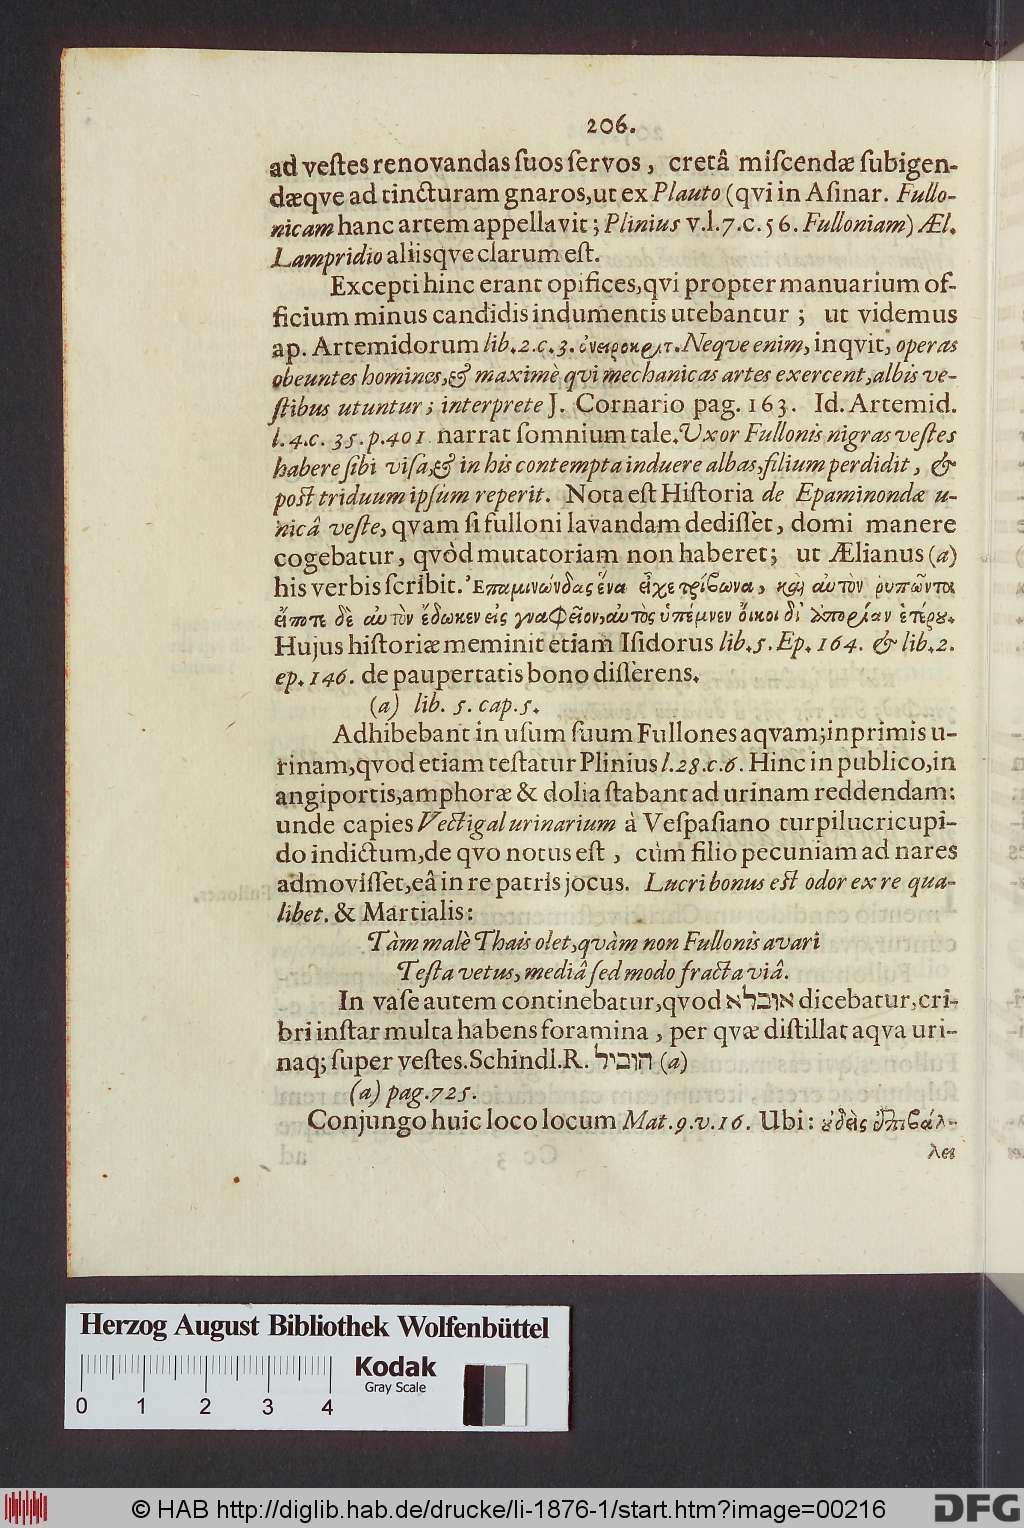 206.
ad veſtes renovandas ſuos ſervos, cretâ miſcendæ ſubigen-
dæqve ad tincturam gnaros, ut ex Plauto (qvi in Aſinar. Fullo-
nicam hanc artem appellavit; Plinius v.l.7.c.56. Fulloniam) Æl.
Lampridio aliisqve clarum eſt.
Excepti hinc erant opifices, qvi propter manuarium of-
ficium minus candidis indumentis utebantur; ut videmus
ap. Artemidorum lib.2.c.3. ὀνειροκριτ. Neque enim, inqvit, operas
obeuntes homines, & maximè qvi mechanicas artes exercent, albis ve-
ſtibus utuntur; interprete J. Cornario pag. 163. Id. Artemid.
l.4.c. 35.p.401 narrat ſomnium tale. Uxor Fullonis nigras veſtes
habere ſibi viſa, & in his contempta induere albas, filium perdidit, &
poſt triduum ipſum reperit. Nota eſt Hiſtoria de Epaminondæ u-
nicâ veſte, qvam ſi fulloni lavandam dediſſèt, domi manere
cogebatur, qvòd mutatoriam non haberet; ut Ælianus (a)
his verbis ſcribit. Ἐπαμινώνδας ἕνα εἶχε τρίβωνα, καὶ αυτὸν ῥυπῶντα
εἴποτε δὲ αυτὸν ἔδωκεν εἰς γναφεῖον, αυτὸς ὑπέμνεν ὄικοι δἰ ἀπορίαν ἑτέρου.
Hujus hiſtoriæ meminit etiam Iſidorus lib.5. Ep. 164. & lib.2.
ep.146. de paupertatis bono diſſèrens.
(a) lib. 5. cap.5.
Adhibebant in uſum ſuum Fullones aqvam; inprimis u-
rinam, qvod etiam teſtatur Plinius l.28.c.6. Hinc in publico, in
angiportis, amphoræ & dolia ſtabant ad urinam reddendam:
unde capies Vectigal urinarium à Veſpaſiano turpilucricupi-
do indictum, de qvo notus eſt, cùm filio pecuniam ad nares
admoviſſet, eâ in re patris jocus. Lucri bonus eſt odor ex re qua-
libet. & Martialis:
Tàm malè Thais olet, qvàm non Fullonis avari
Teſta vetus, mediâ ſed modo fracta viâ.
In vaſe autem continebatur, qvod אובלא dicebatur, cri-
bri inſtar multa habens foramina, per qvæ diſtillat aqva uri-
naq; ſuper veſtes. Schindl. R. הוביל (a)
(a) pag.725.
Conjungo huic loco locum Mat.9.v.16. Ubi: ουδεὶς ἐπιβάλ-
λει
Herzog August Bibliothek Wolfenbüttel
Kodak
Gray Scale
0 1 2 3 4
© HAB http://diglib.hab.de/drucke/li-1876-1/start.htm?image=00216
DFG